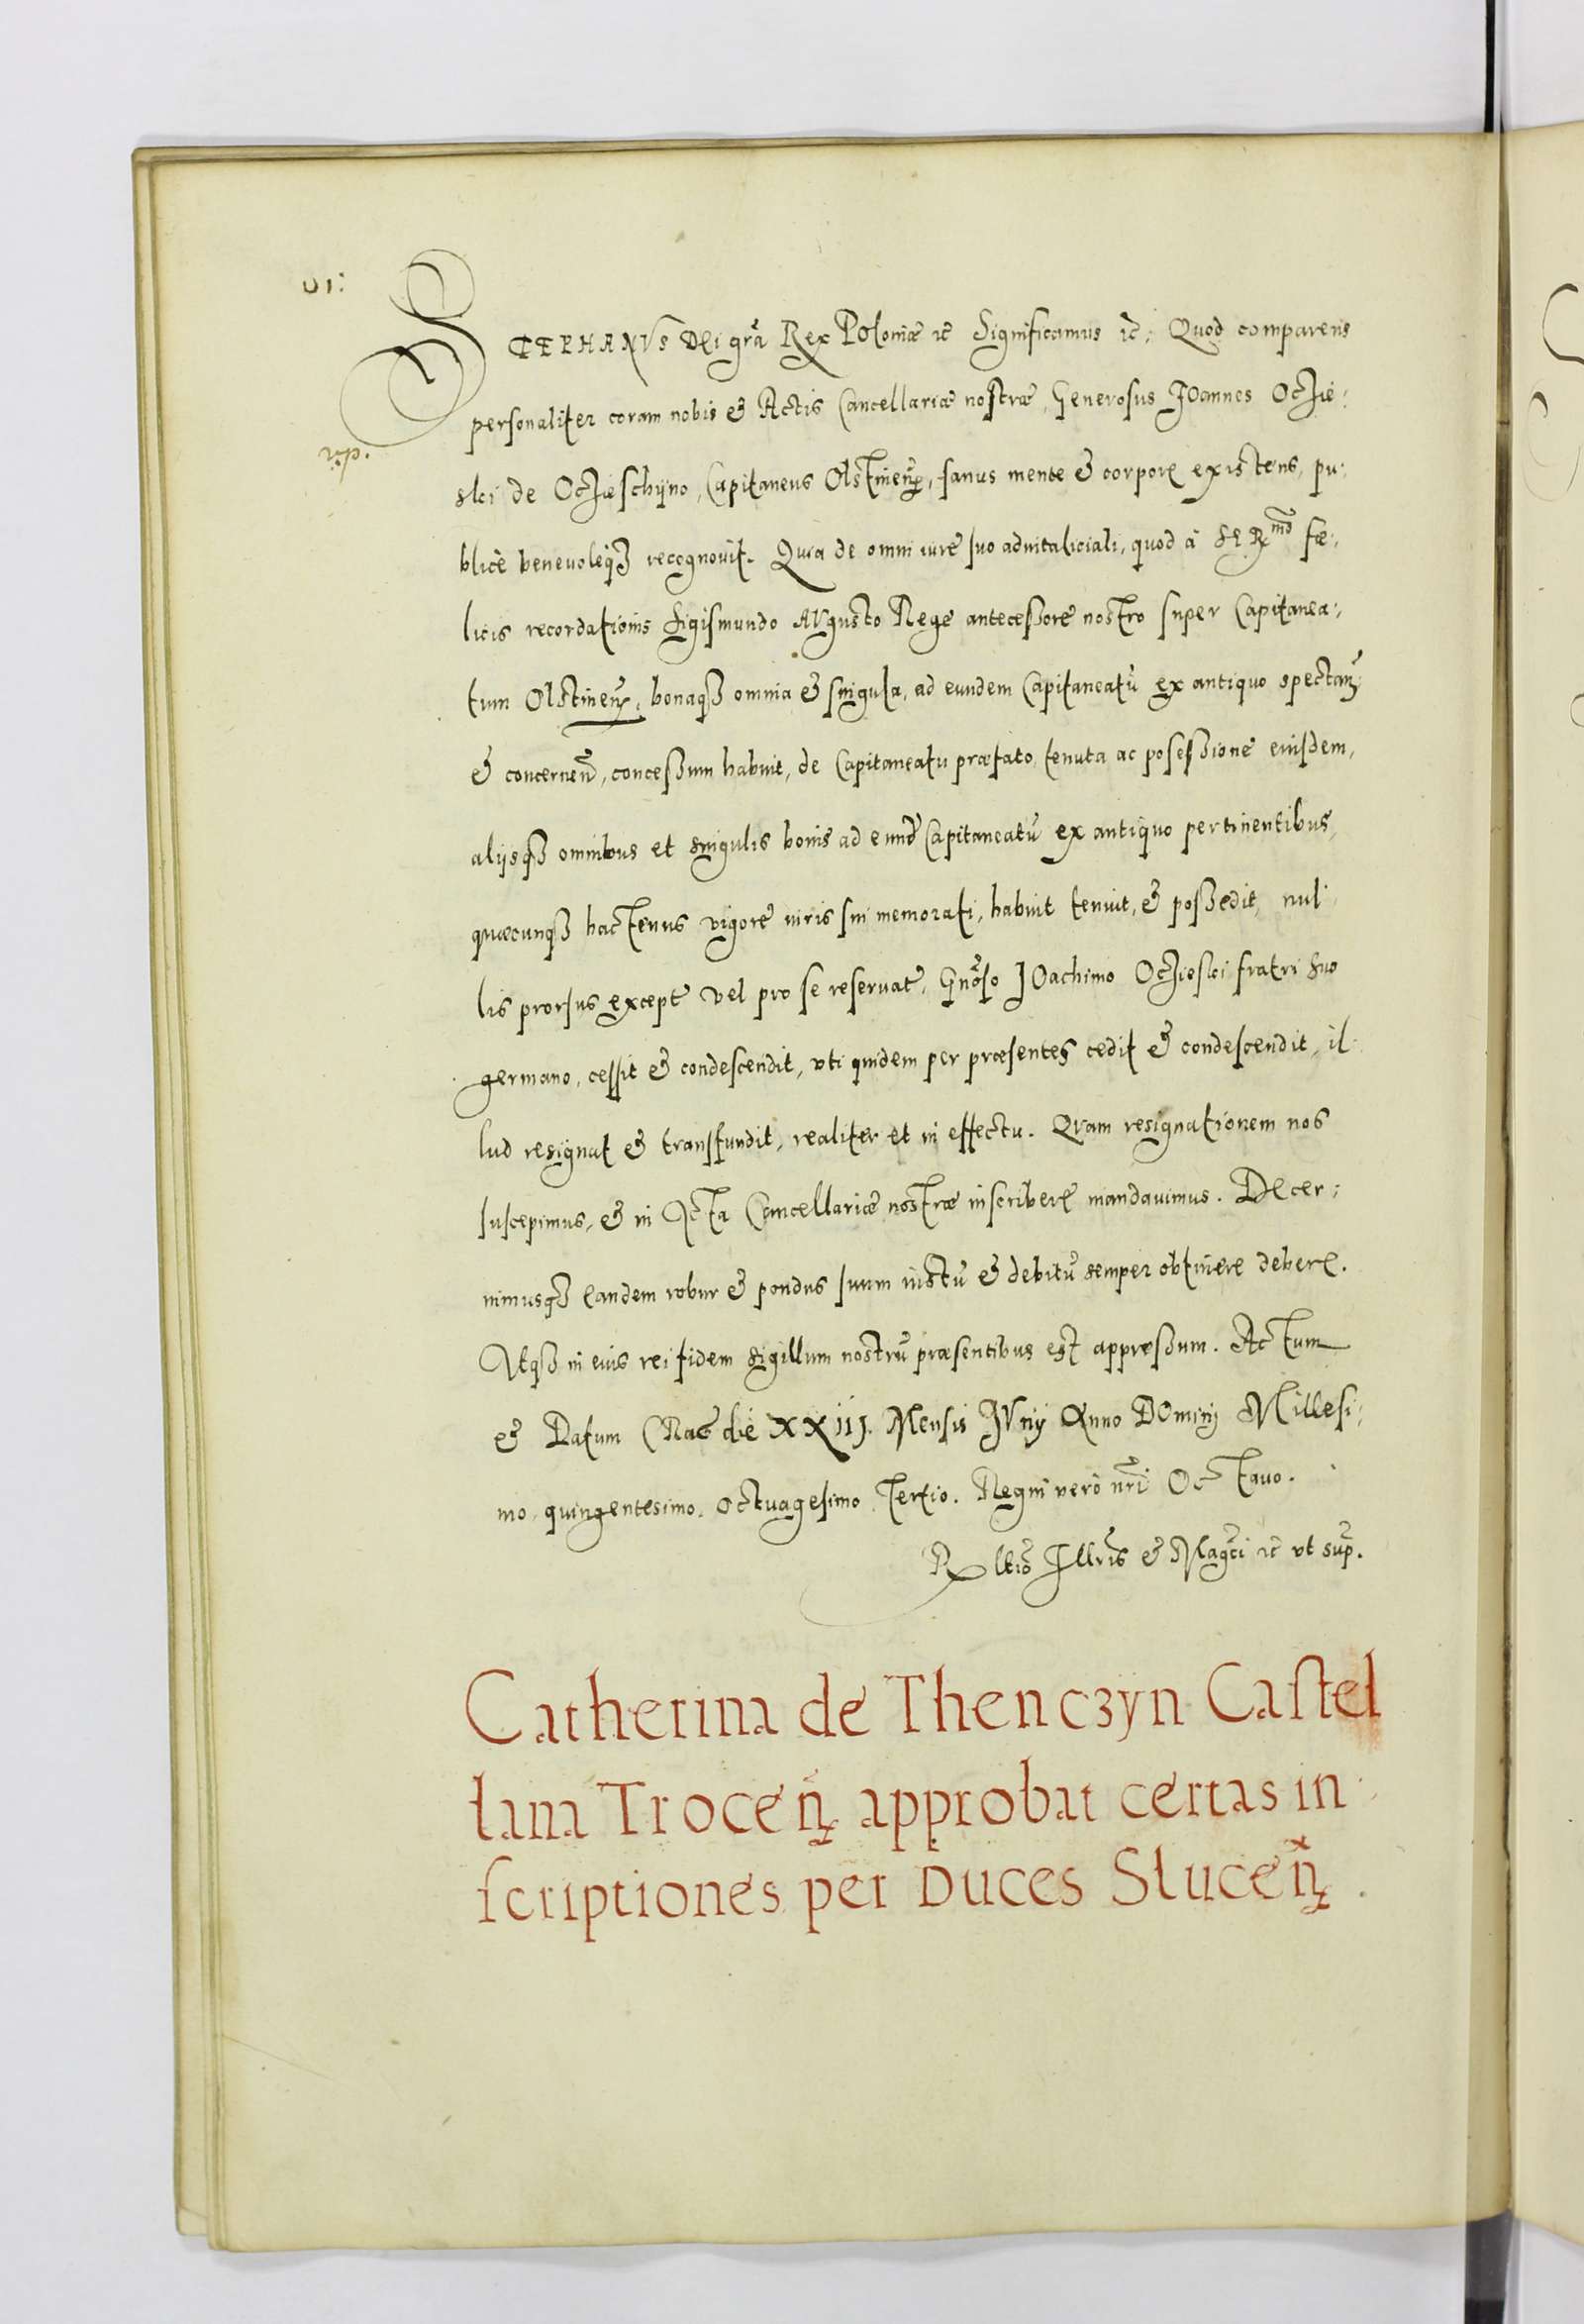 VI:
STEPHANVS Dei gr̃a Rex Poloniæ ꝛc̃ Significamus ꝛc̃; Quod comparens
personaliter coram nobis & Actis Cancellariæ nostræ, Generosus Joannes Oczie:
ski de Oczieschijno, Capitaneus Olstinen̄, sanus mente & corpore existens, pu:
blicè beneuoleqꝫ recognouit. Quia de omni iure suo aduitaliciali, quod à SER^mo fæ:
licis recordationis Sigismundo AVgusto Rege antecessore nostro super Capitanea:
tum Olstinen̄, bonaqꝫ omnia & singula, ad eundem Capitaneatũ ex antiquo spectan̄
& concernen̄, concessum habuit, de Capitaneatu præfato, tenuta ac posessione eiusdem,
alijsqꝫ omnibus et singulis bonis ad eund̃ Capitaneatũ ex antiquo pertinentibus,
quæcunqꝫ hactenus vigore iuris sui memorati, habuit tenuit, & possedit, nul:
lis prorsus except̃ vel pro se reseruat̃, Gñoso JOachimo Oczieski fratri suo
germano, cessit & condescendit, vti quidem per præsentes cedit & condescendit, il:
lud resignat & transfundit, realiter et in effectu. Quam resignationem nos
suscepimus, & in Acta Cancellariæ nostræ inscribere mandauimus. Decer:
nimusqꝫ eandem robur & pondus suum iustũ & debitũ semper obtinere debere.
Atqꝫ in eius rei fidem sigillum nostrũ præsentibus est appressum. Actum
& Datum Crac̃ die XXIIJ. Mensis JVnij Anno DOmini Millesi:
mo, quingentesimo, octuagesimo Tertio. Regni verò nr̃i Octauo.
Rltis Illr̃is & Magci ꝛc̃ vt sup̃.
Catherina de Thenczyn Castel
lana Trocen̄ approbat certas in:
scriptiones per Duces Slucen̄.